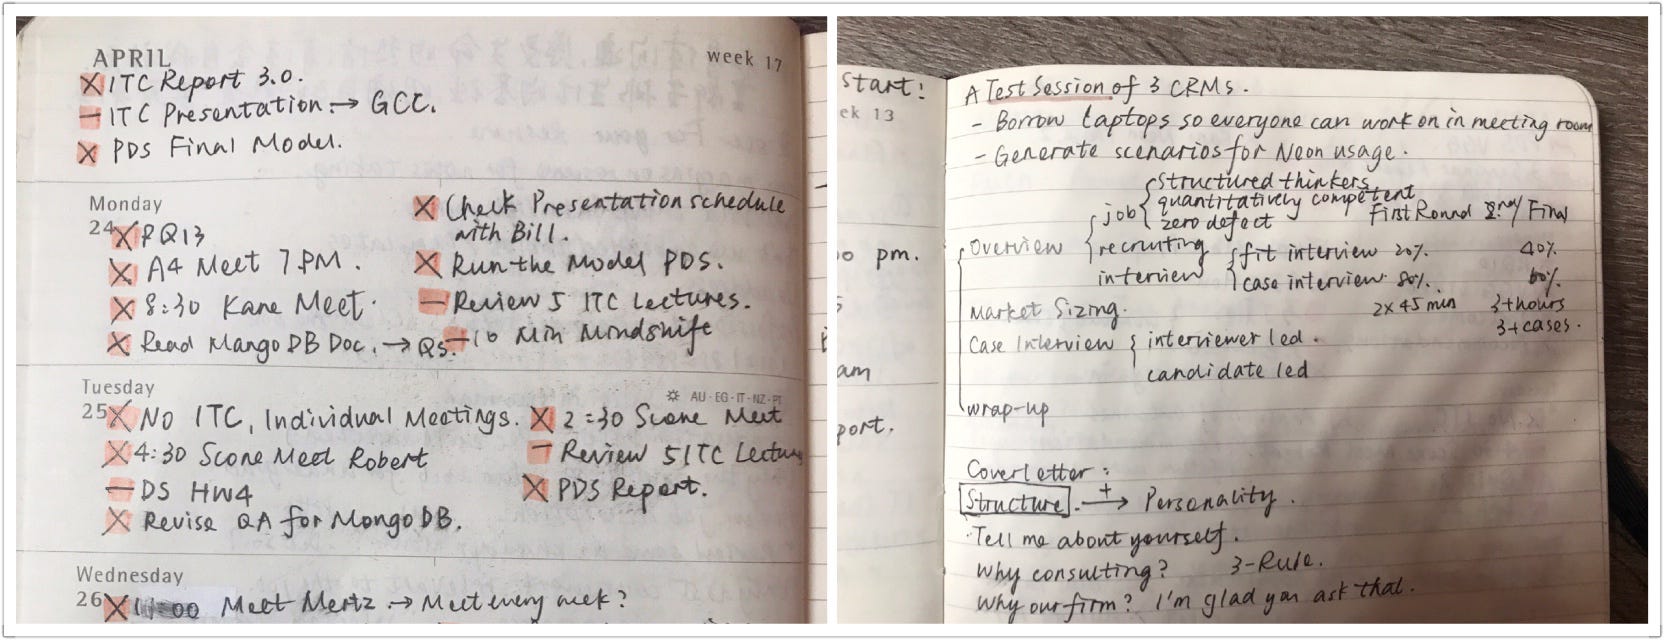 APRIL
week 17
X ITC Report 3.0.
— ITC Presentation → GCC.
X PDS Final Model.
Monday
24 X PQ13
X A4 Meet 7PM.
X 8:30 Kane Meet.
X Read MangoDB Doc. → Qs.
X Check Presentation schedule
with Bill.
X Run the Model PDS.
— Review 5 ITC Lectures.
— 10 Min Mindshift
Tuesday
AU·EG·IT·NZ·PT
25 X No ITC, Individual Meetings.
X 4:30 Scone Meet Robert
— DS HW4
X Revise QA for MongoDB.
X 2:30 Scone Meet
— Review 5 ITC Lectures
X PDS Report.
Wednesday
26 X 11:00 Meet Mertz → Meet every week?
start!
ek 13
0 pm.
am
port.
A Test Session of 3 CRMs.
- Borrow laptops so everyone can work on in meeting room
- Generate scenarios for Neon usage.
structured thinkers
job { quantitatively competent
zero defect
First Round 2nd/Final
Overview { recruiting
interview { fit interview 20% 40%
case interview 80%. 60%
Market Sizing. 2x45 min 3+hours
3+cases.
Case Interview { interviewer led.
candidate led
wrap-up
Coverletter:
Structure. +→ Personality.
Tell me about yourself.
Why consulting? 3-Rule.
Why our firm? I'm glad you ask that.